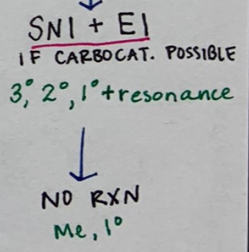 SN1 + E1
IF CARBOCAT. POSSIBLE
3°, 2°, 1° + resonance
NO RXN
Me, 1°